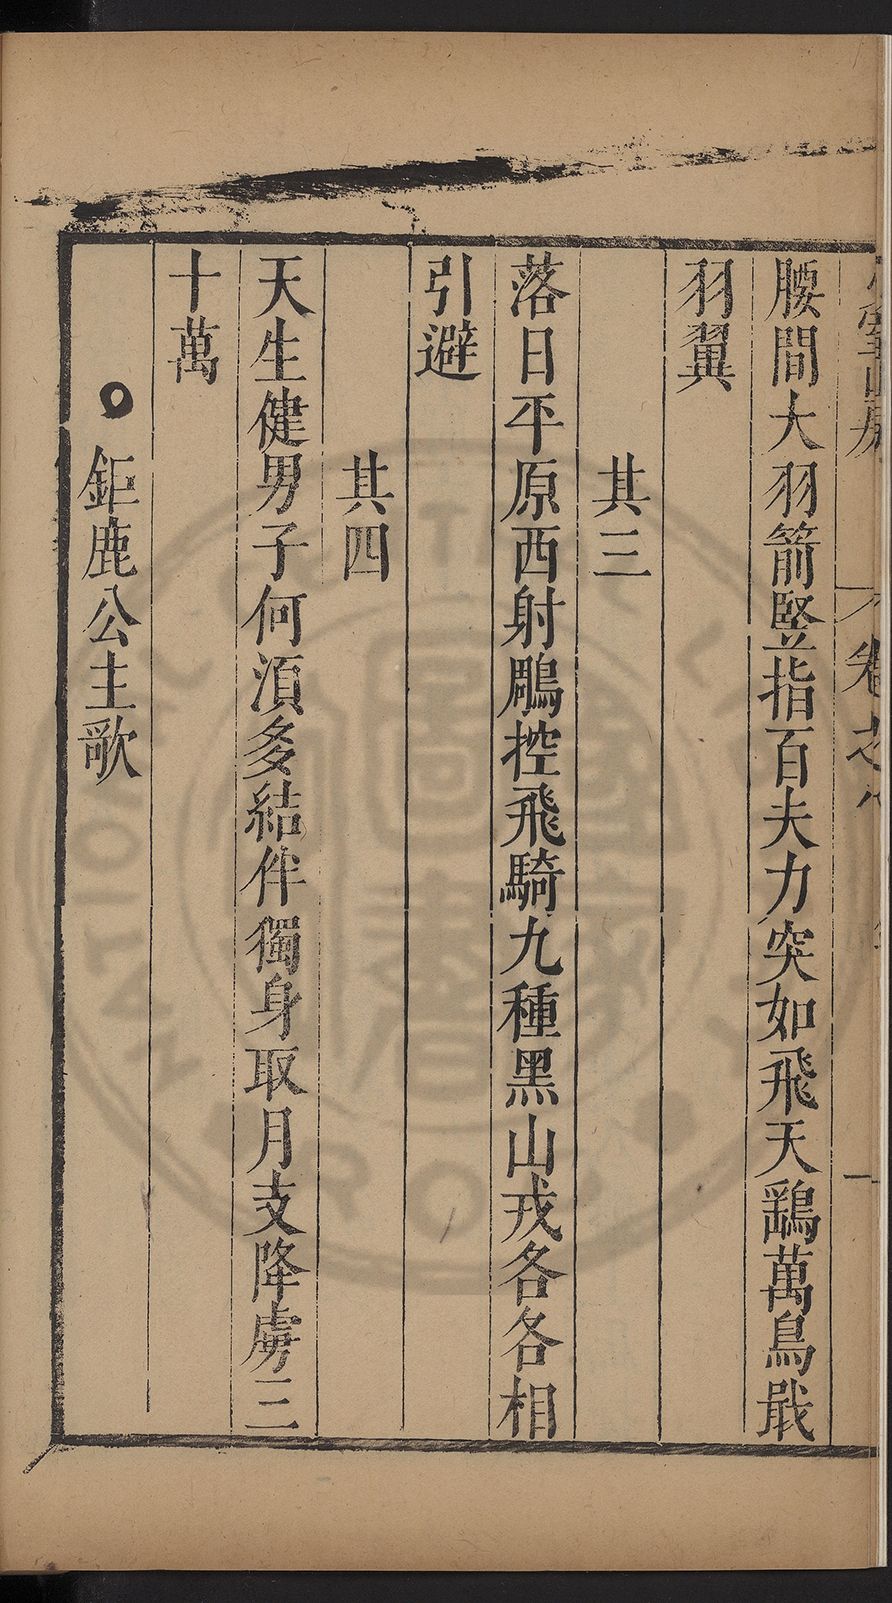 腰間大羽箭竪指百夫力突如飛天鷂萬鳥戢
羽翼
其三
落日平原西射鵰控飛騎九種黑山戎各各相
引避
其四
天生健男子何湏多結伴獨身取月支降虜三
十萬
鉅鹿公主歌
卷之八